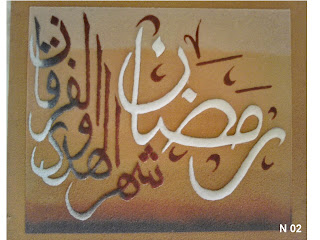 رمضان
شهر الهدى والفرقان
N 02